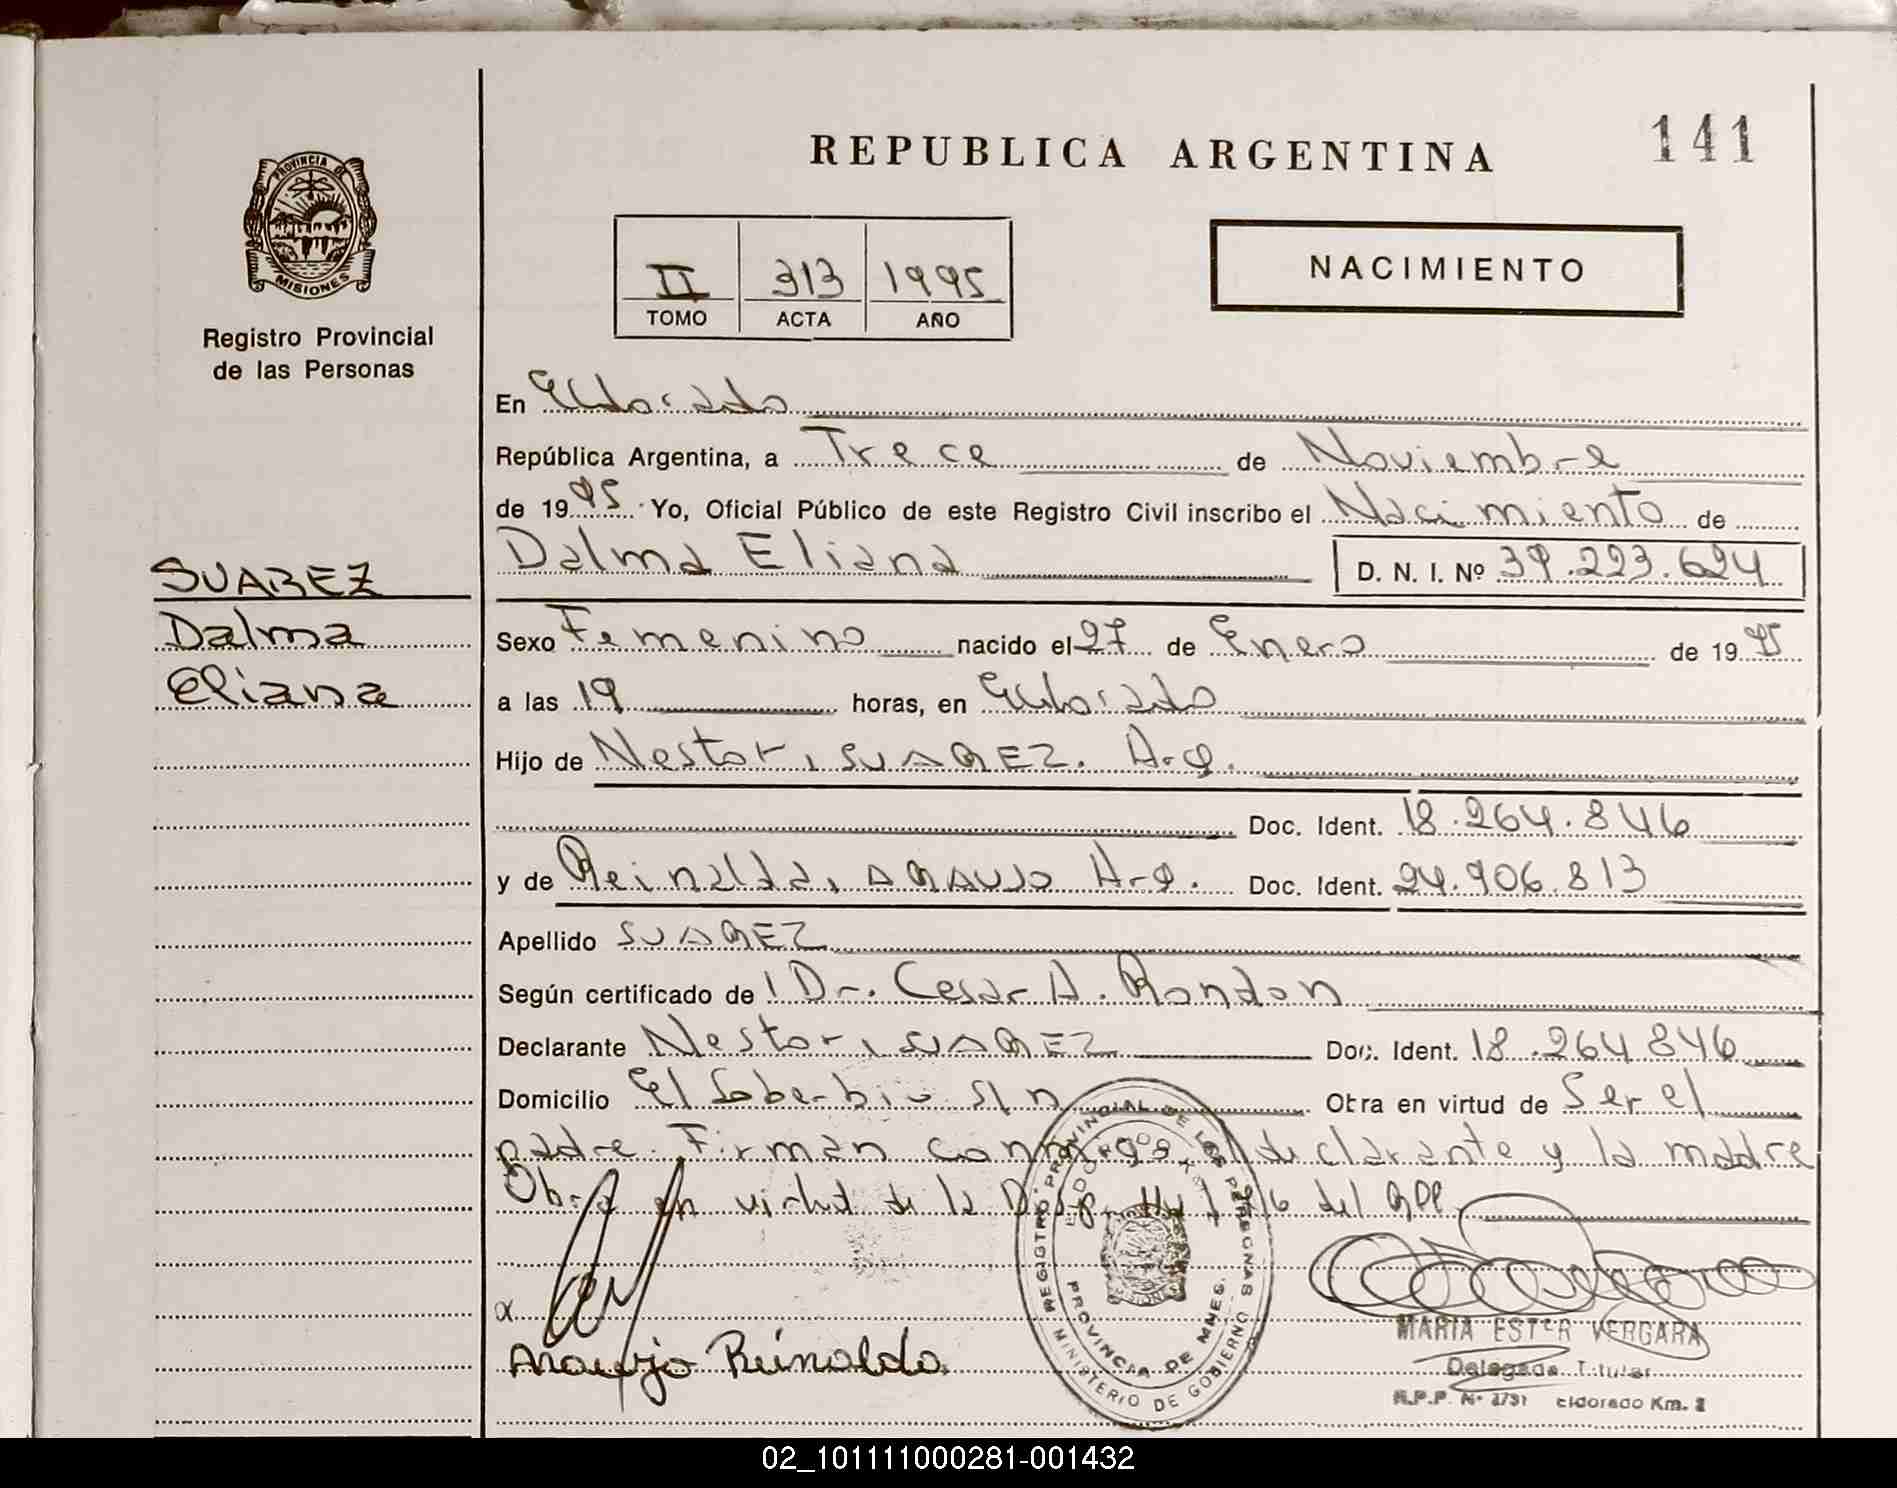 REPUBLICA ARGENTINA
141
PROVINCIA DE
MISIONES
Registro Provincial
de las Personas
II 313 1995
TOMO ACTA AÑO
NACIMIENTO
En Eldorado
República Argentina, a Trece de Noviembre
de 1995 Yo, Oficial Público de este Registro Civil inscribo el Nacimiento de
Dalma Eliana D. N. I. Nº 39.223.624
SUAREZ
Dalma
Eliana
Sexo Femenino nacido el 27 de Enero de 1995
a las 19 horas, en Eldorado
Hijo de Nestor, SUAREZ. Arg.
Doc. Ident. 18.264.846
y de Reinalda, ARAUJO Arg. Doc. Ident. 24.906.813
Apellido SUAREZ
Según certificado de l Dr. Cesar A. Rondon
Declarante Nestor, SUAREZ Doc. Ident. 18.264846
Domicilio El Soberbio S/n Obra en virtud de Ser el
padre. Firman conmigo el declarante y la madre
Obra en virtud de la Disp. del RPP
Araujo Reinalda
REGISTRO PROVINCIAL DE LAS PERSONAS
PROVINCIA DE MNES.
MINISTERIO DE GOBIERNO
MARIA ESTER VERGARA
Delegada Titular
R.P.P. Nº Eldorado Km. 2
02_101111000281-001432